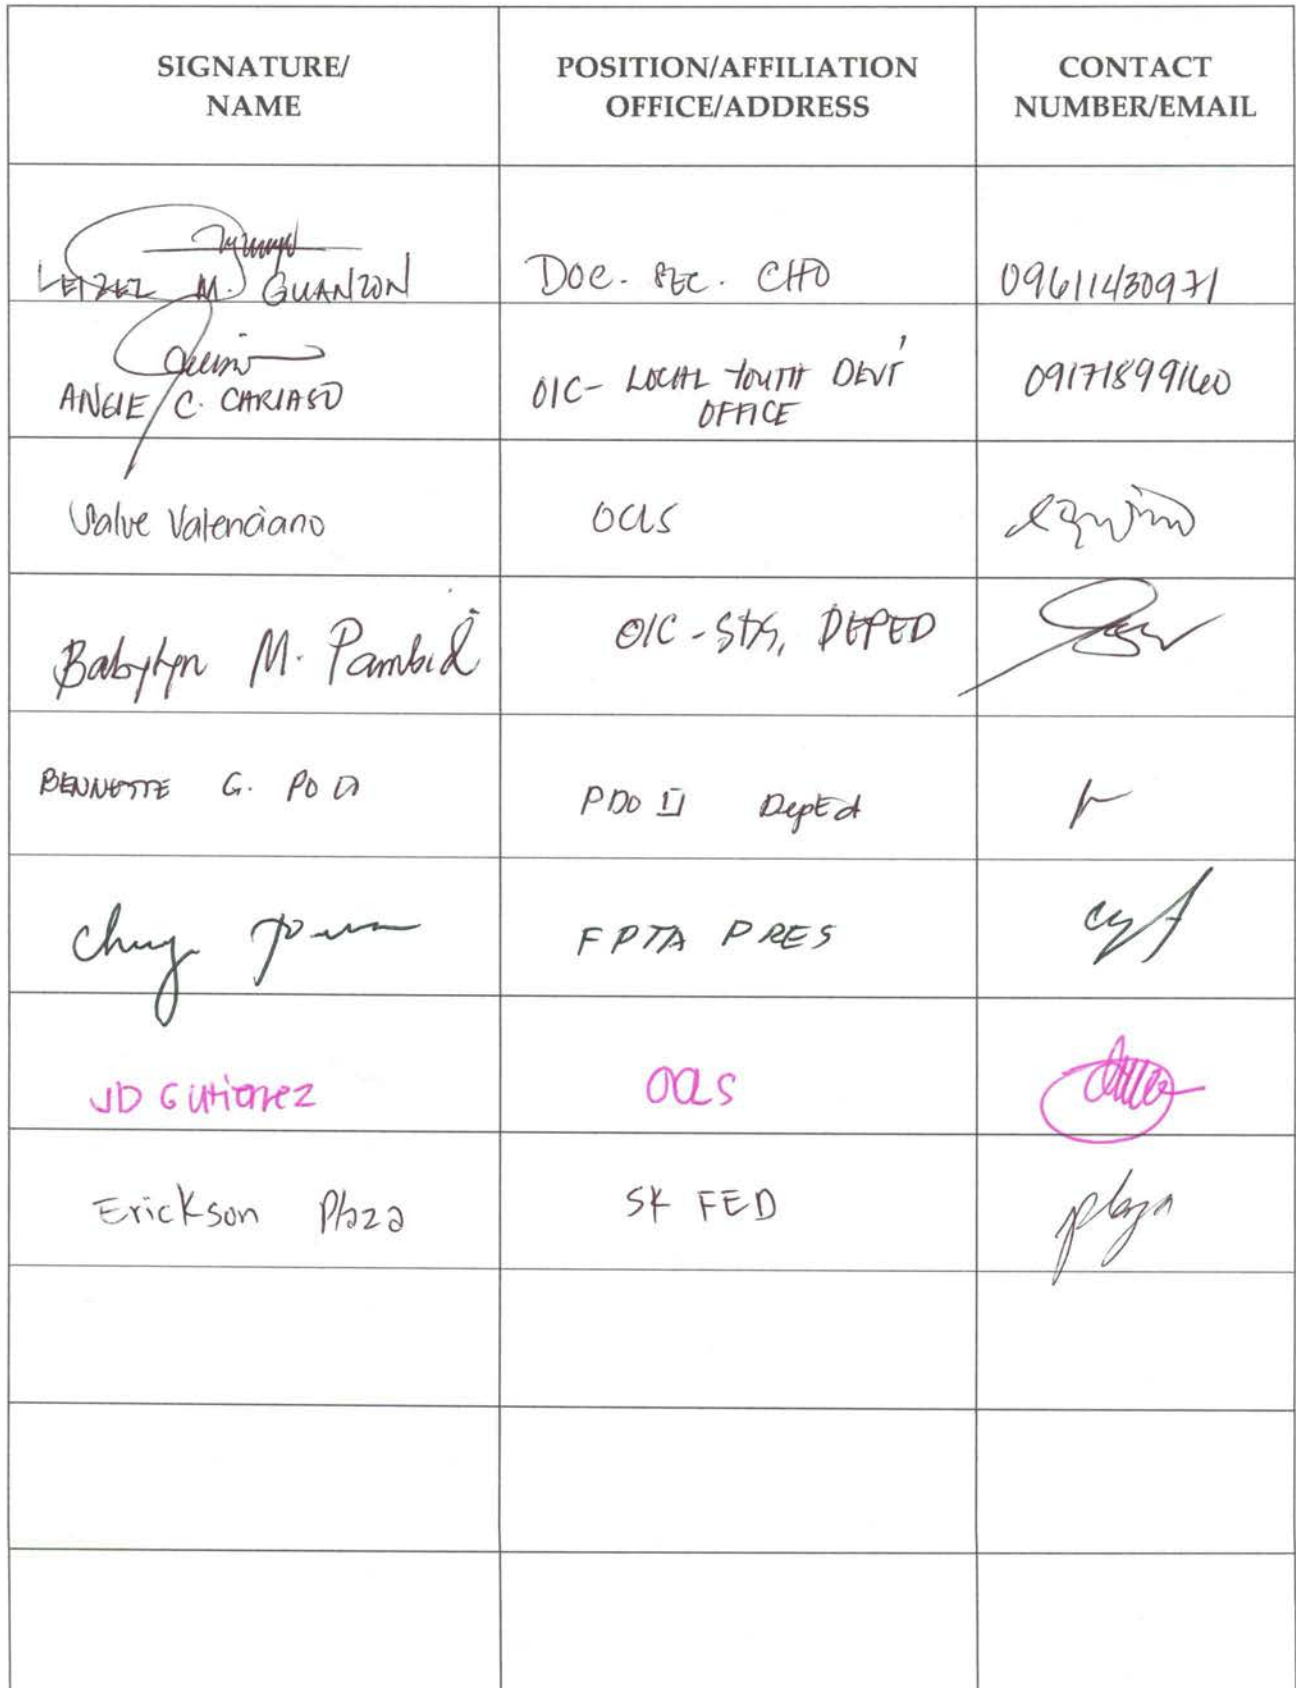 SIGNATURE/
NAME
POSITION/AFFILIATION
OFFICE/ADDRESS
CONTACT
NUMBER/EMAIL
M. GUANZON
DOC. SEC. CHO
09611430971
ANGIE C. CARIASO
OIC- LOCAL YOUTH DEV'T
OFFICE
09171899160
Salve Valenciano
OCLS
Babylyn M. Pambid
OIC-SDS, DEPED
BENNETTE G. PO
PDO II DepEd
FPTA PRES
JD Gutierrez
OCLS
Erickson Plaza
SK FED
plaza